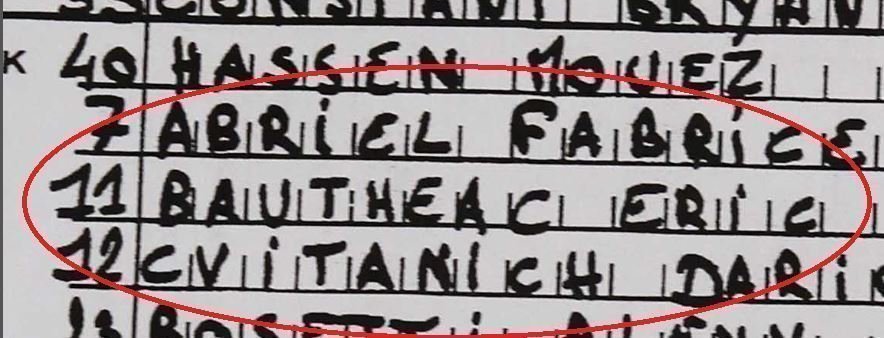 33 CONSTANT BRYAN
K 40 HASSEN MOUEZ
7 ABRIEL FABRICE
11 BAUTHEAC ERIC
12 CVITANICH DARI
13 BOSETTI ALEXY